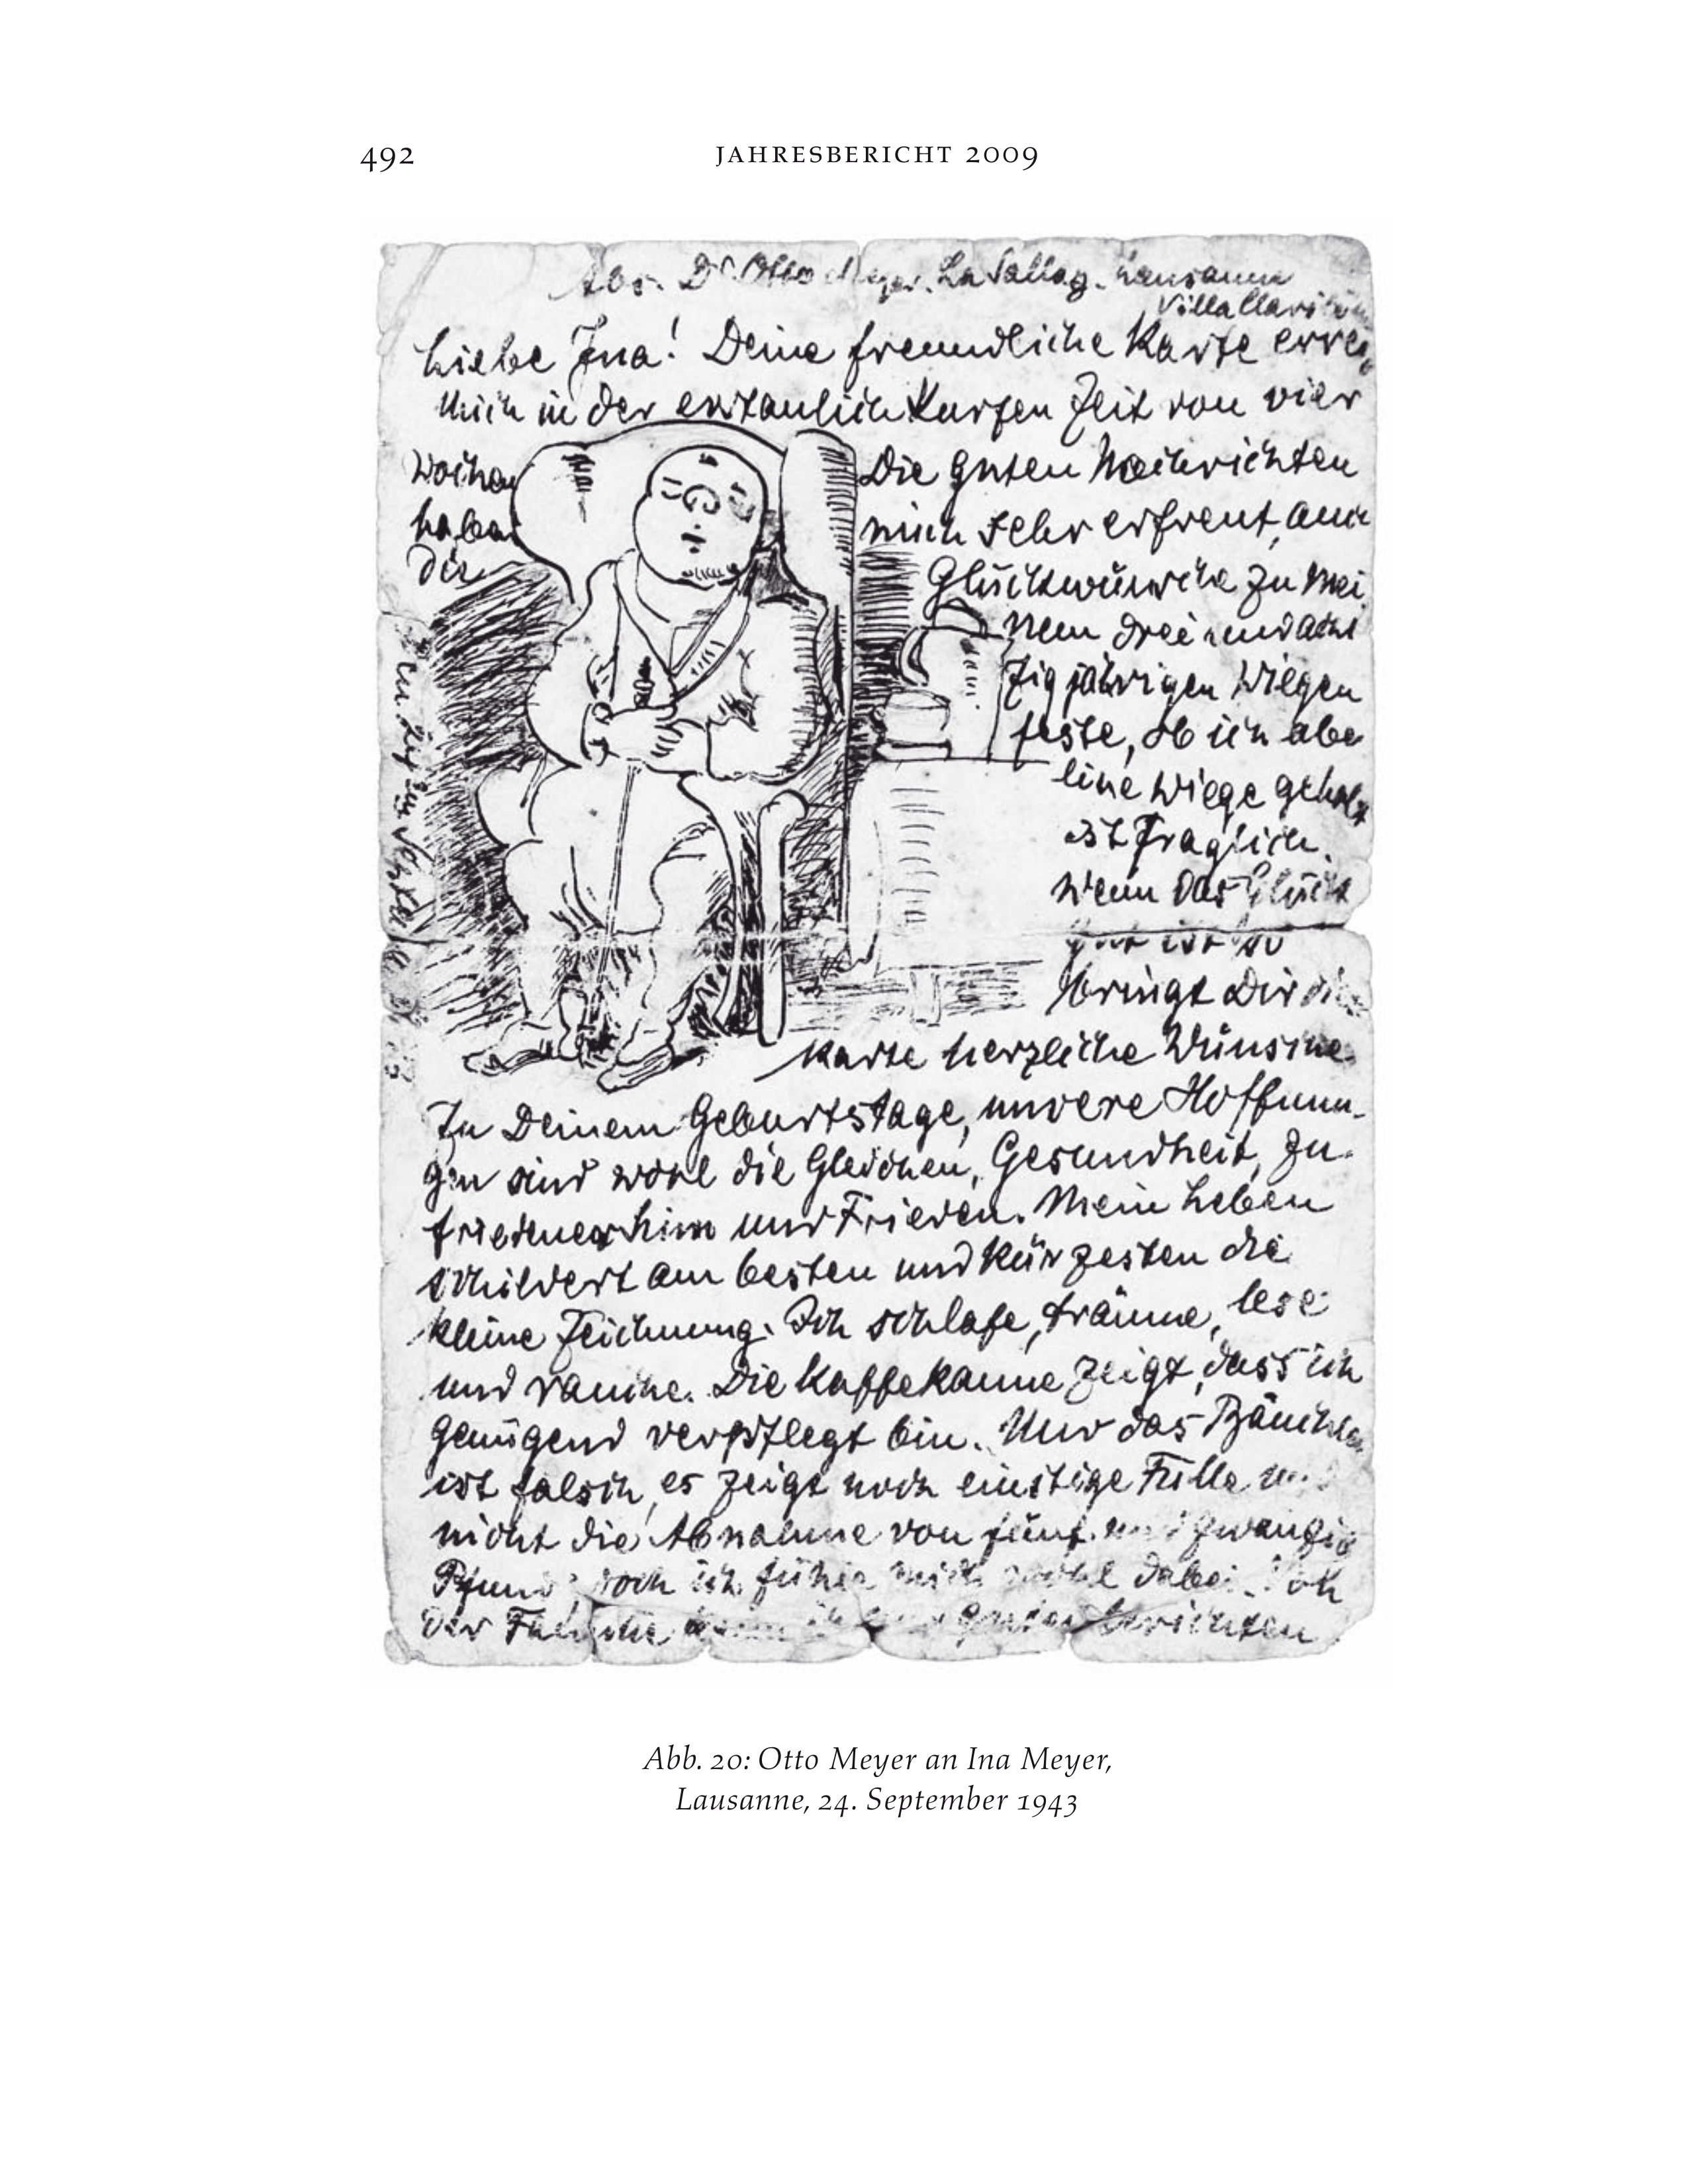 492
JAHRESBERICHT 2009
Abs. Dr Otto Meyer. La Sallaz. Lausanne
Villa
Liebe Ina! Deine freundliche Karte errei
mich in der erstaunlich kurzen Zeit von vier
Wochen Die guten Nachrichten
haben mich sehr erfreut, auch
die Glückwünsche zu mei
nem dreiundacht
zigjährigen Wiegen
feste, ob ich aber
eine Wiege gehabt
ist fraglich.
Wenn das Glück
gut ist so
bringt Dir die
Karte herzliche Wünsche
Zu Deinem Geburtstage, unsere Hoffnun-
gen sind wohl die Gleichen, Gesundheit, Zu-
friedenheim und Frieden. Mein Leben
schildert am besten und kürzesten die
kleine Zeichnung. Ich schlafe, träume, lese
und rauche. Die Kaffekanne zeigt, dass ich
genügend verpflegt bin. Nur das Bäuchlein
ist falsch, es zeigt noch einstige Fülle und
nicht die Abnahme von fünf und zwanzig
Pfund, doch ich fühle mich wohl dabei. Von
der Familie kann ich Gutes berichten
Abb. 20: Otto Meyer an Ina Meyer,
Lausanne, 24. September 1943